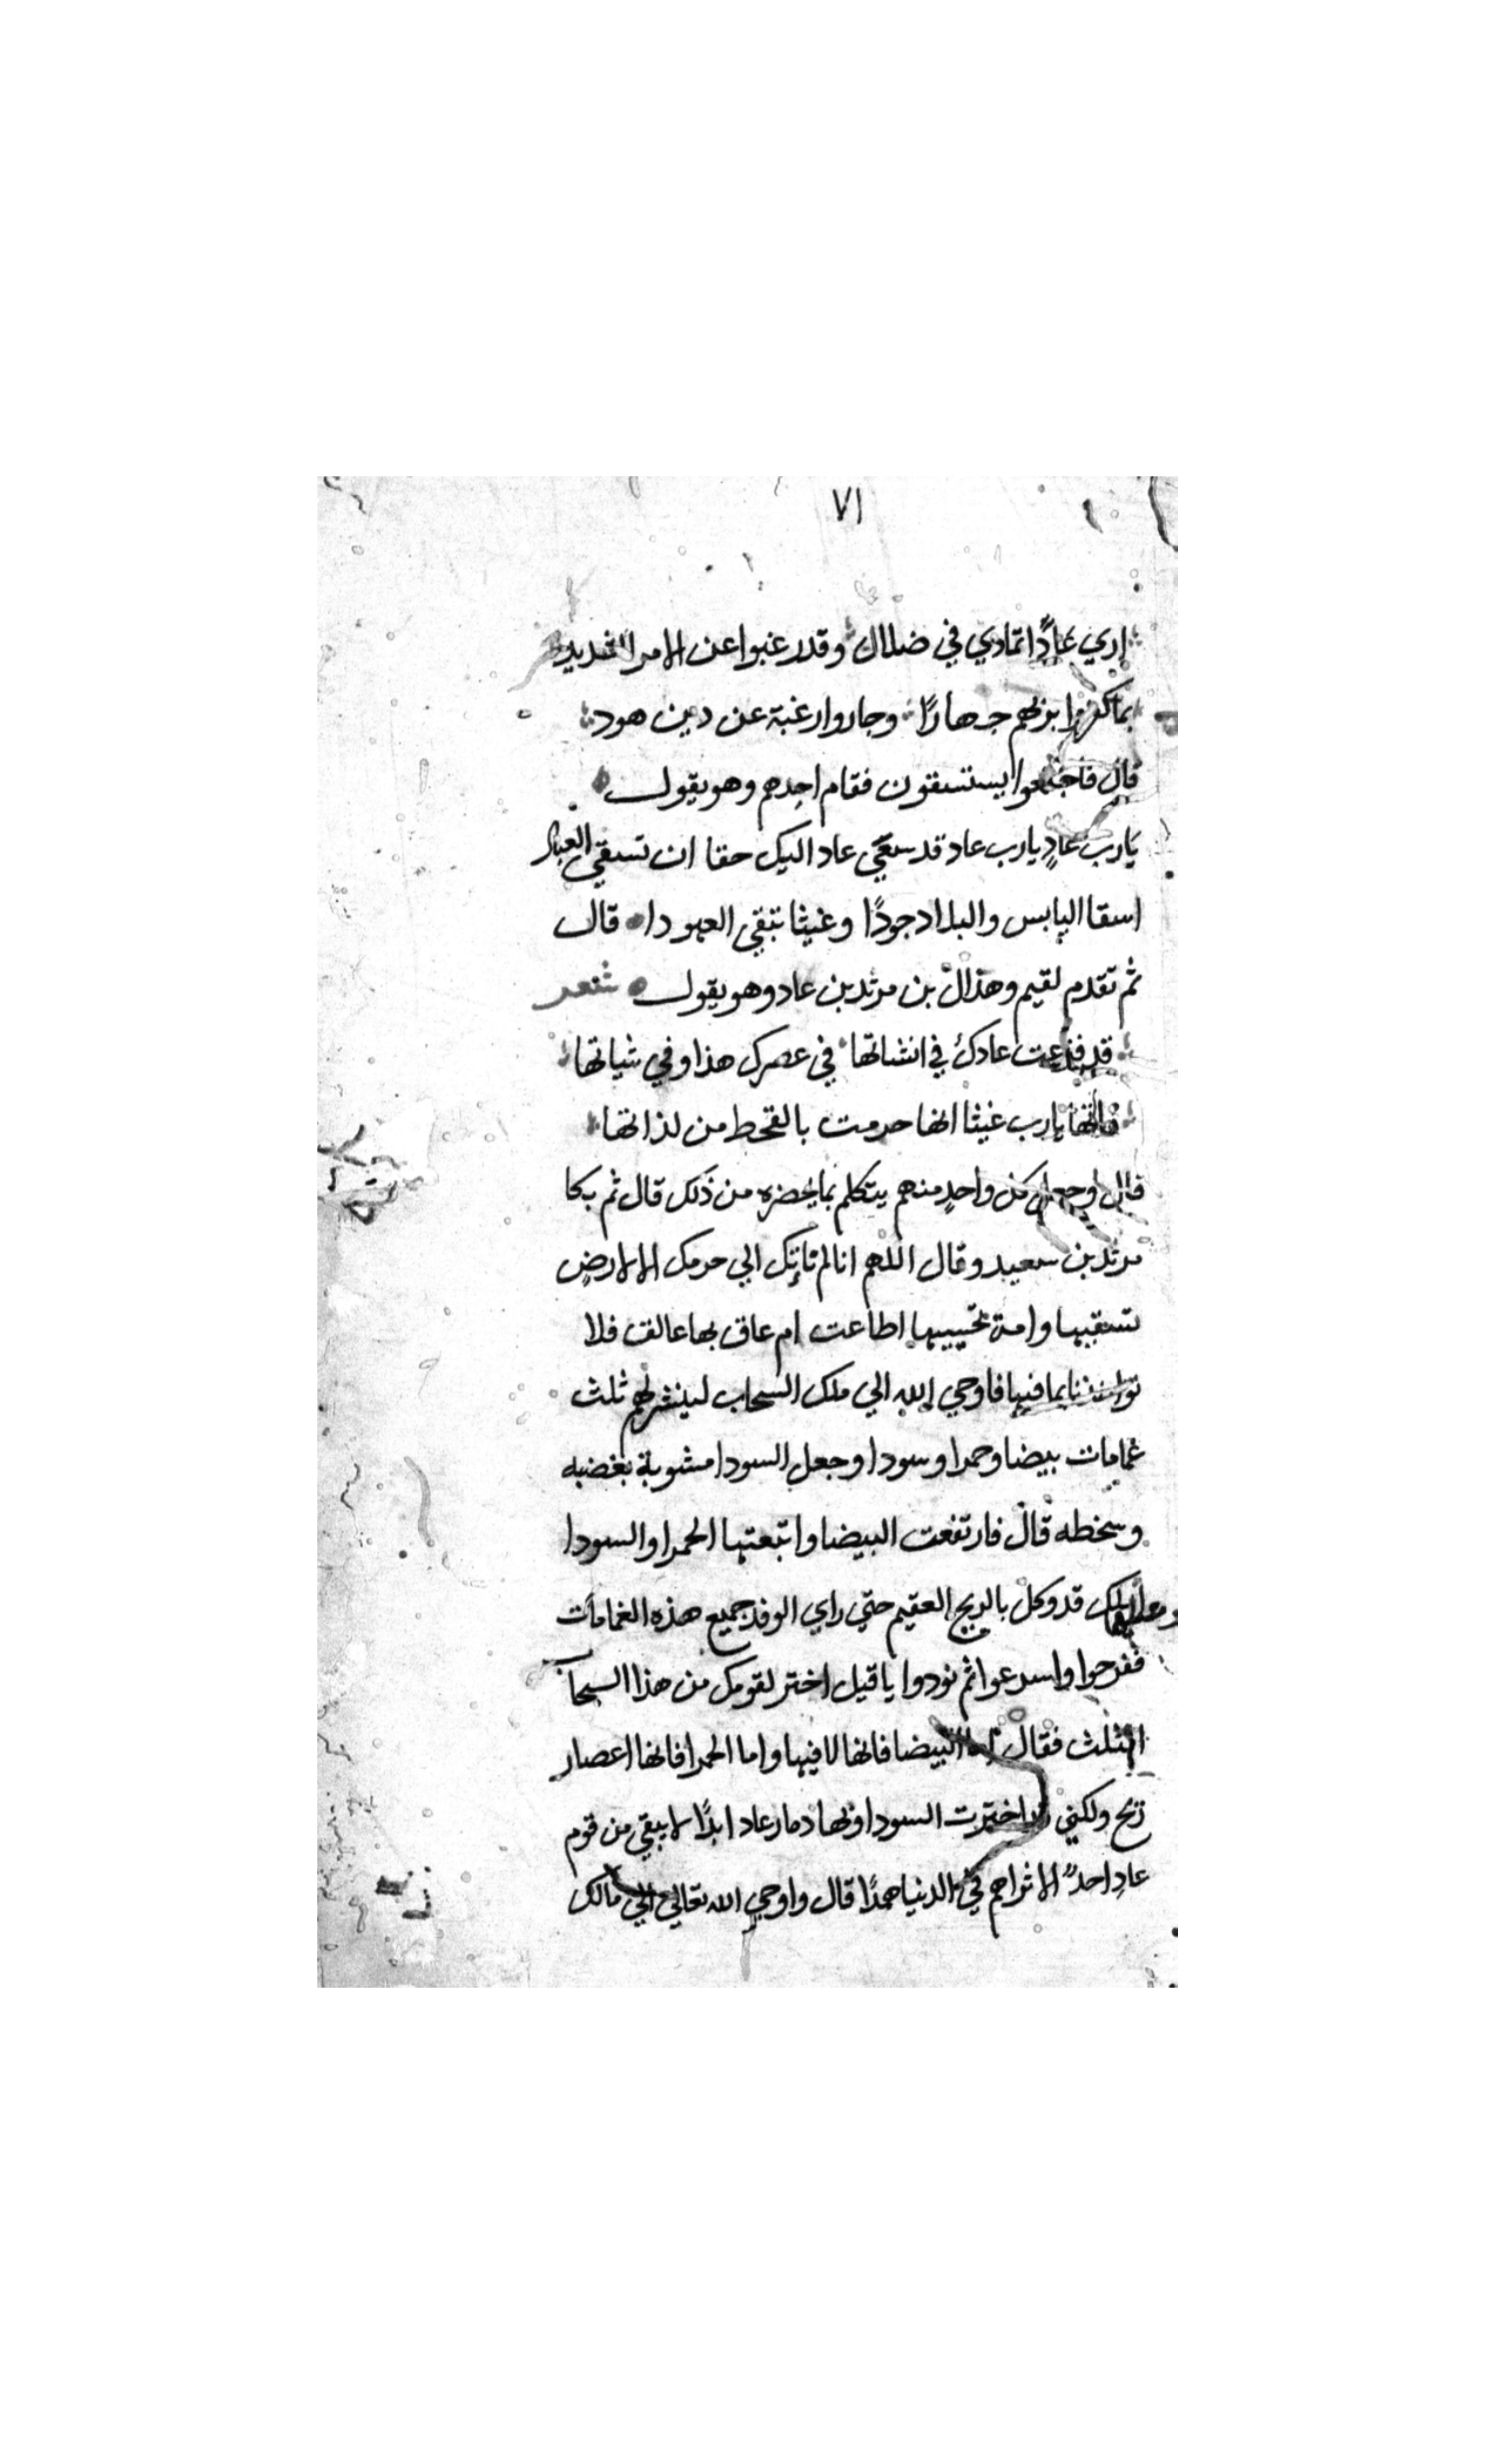 ٧١
إري عادًا تمادي في ضلال وقد رغبوا عن الامر الشديد
بما كفروا بربهم جهارًا وجاروا رغبة عن دين هود
قال فاجتمعوا يستسقون فقام احدهم وهو يقول
يارب عادٍ يارب عاد قد سعَي عاد اليك حقا ان تسقي العباد
اسقا اليابس والبلاد جودًا وغيثا تبقي العبودا قال
ثم تقدم لقيم وهذال بن مرثد بن عاد وهو يقول شعر
قد فزعت عادك في انشاتها في عصرك هذا وفي شياتها
يارب غيثا انها حرمت بالقحط من لذاتها
قال وجعل كل واحدٍ منهم يتكلم بما يحضره من ذلك قال ثم بكا
مرثد بن سعيد وقال اللهم انا لم ناتك الي حرمك الا لارضٍ
تسقيها وامة تحييها اطاعت ام عاق بها عالق فلا
بما فيها فاوحي الله الي ملك السحاب لينشر لهم ثلث
غمامات بيضا وحمرا وسودا وجعل السودا مشوبة بغضبه
وسخطه قال فارتفعت البيضا واتبعتها الحمرا والسودا
ملك قد وكل بالريح العقيم حتي راي الوفد جميع هذه الغمامات
ففرحوا واسرعوا ثم نودوا يا قيل اختر لقومك من هذا السحاب
الثلث فقال اما البيضا فانها لا فيها واما الحمرا فانها اعصار
ريح ولكني اخترت السودا وبها دمار عاد ابدًا لا يبقي من قوم
عادٍ احدً الا تراهم في الدنيا همدًا قال واوحي الله تعالي الي مالك